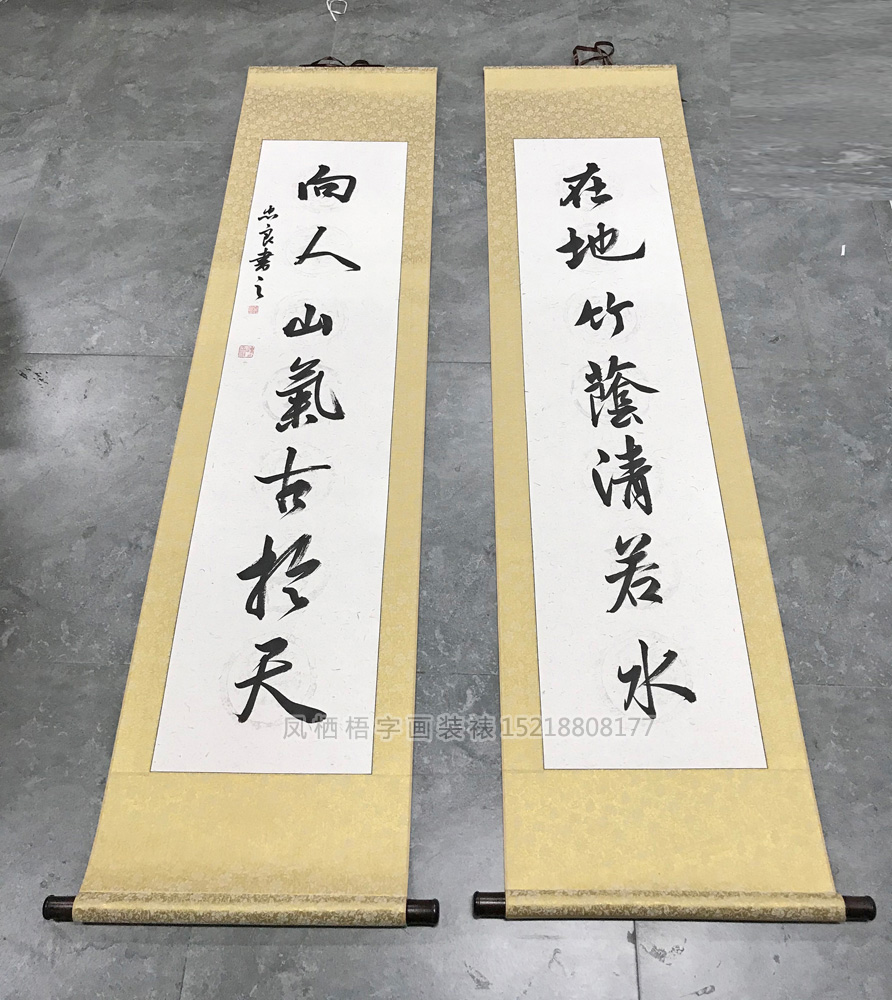 在地竹蔭清若水
向人山氣古於天
忠良書之
凤栖梧字画装裱15218808177